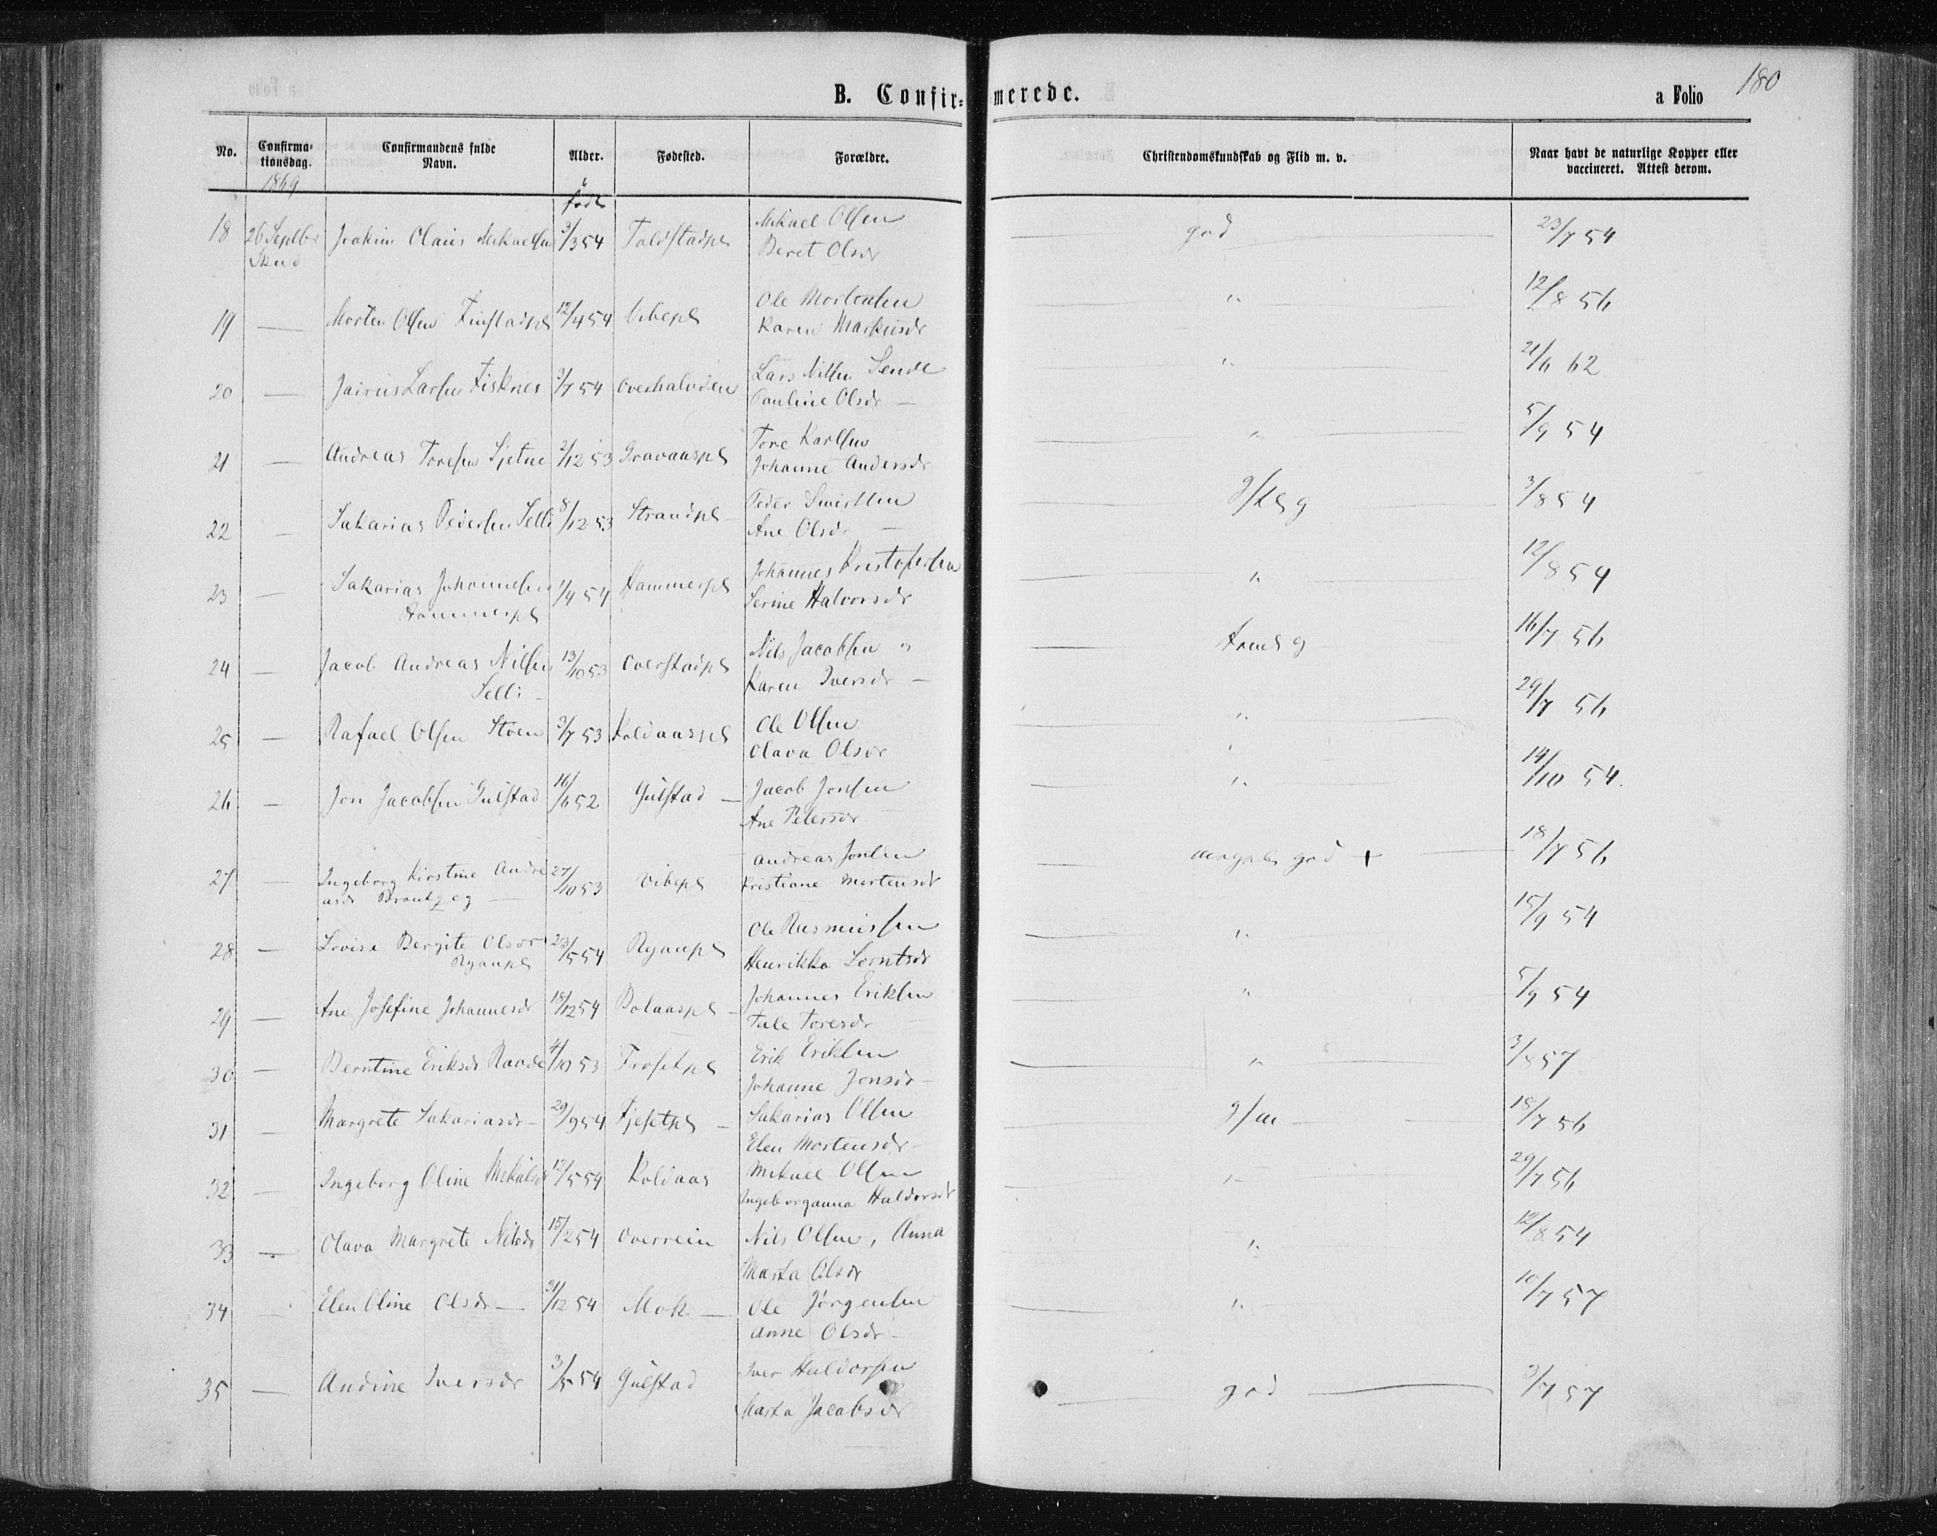 180
B. Confirmerede.
a Folio
No.
Confirmationsdag.
Confirmandens fulde Navn.
Alder.
Fødested.
Forældre.
Christendomskundskab og Flid m. v.
Naar havt de naturlige Kopper eller vaccineret. Attest derom.
1869
født
18 26 Septbr Joakim Olaus Mikaelsen 3/3 54 Mikael Olsen god 23/7 54
Beret Olsdr
19 — Morten Olsen Finstadpl 12/4 54 Vibepl Ole Mortensen " 12/8 56
Karen Markusdr
20 — Jairus Larsen Fisknes 3/7 54 Overhalvden Lars Nilsen Sende " 21/6 62
Pauline Olsdr —
21 — Andreas Toresen Sjetne 2/12 53 Gravaaspl Tore Karlsen " 5/9 54
Johanne Andersdr
22 — Sakarias Pedersen Selli 8/12 53 Strandpl Peder 3/8 54
Ane Olsdr —
23 — Sakarias Johannesen 1/4 54 Hammerpl Johannes Kristofersen " 12/8 54
Hammerpl Serine Halvorsdr
24 — Jacob Andreas Nilsen 13/10 53 Overstadpl Nils Jacobsen 16/7 56
Selli — Karen Iversdr —
25 — Rafael Olsen Stoen 3/7 53 Koldaaspl Ole Olsen " 29/7 56
Olava Olsdr
26 — Jon Jacobsen Gulstad 16/6 52 Gulstad — Jacob Jonsen " 14/10 54
Ane Petersdr
27 — Ingeborg Kirstine Andre 27/10 53 Vibepl Andreas Jonsen god + 18/7 56
asdr — Kristiane Mortensdr
28 — Lovise Bergite Olsdr 23/5 54 Ryanpl Ole Rasmussen " 15/9 54
Ryanpl Henrikka Lorntsdr
29 — Ane Josefine Johannesdr 18/12 54 Bolaaspl — Johannes Eriksen " 5/9 54
Tale Toresdr
30 — Berntine Eriksdr Raade 4/10 53 Frosetpl Erik Eriksen " 3/8 57
Johanne Jonsdr —
31 — Margrete Sakariasdr — 29/9 54 Fjesetpl — Sakarias Olsen 18/7 56
Elen Mortensdr —
32 — Ingeborg Oline Mikalsdr 12/5 54 Koldaas Mikael Olsen " 29/7 56
Ingeborganna Haldorsdr
33 — Olava Margrete Nilsdr 15/2 54 Overrein Nils Olsen, Anna " 12/8 54
Marta Olsdr
34 — Elen Oline Olsdr — 31/12 54 Mok — Ole Jørgensen " 10/7 57
Anne Olsdr —
35 — Andine Iversdr 3/5 54 Gulstad Iver Haldorsen god 3/7 57
Marta Jacobsdr